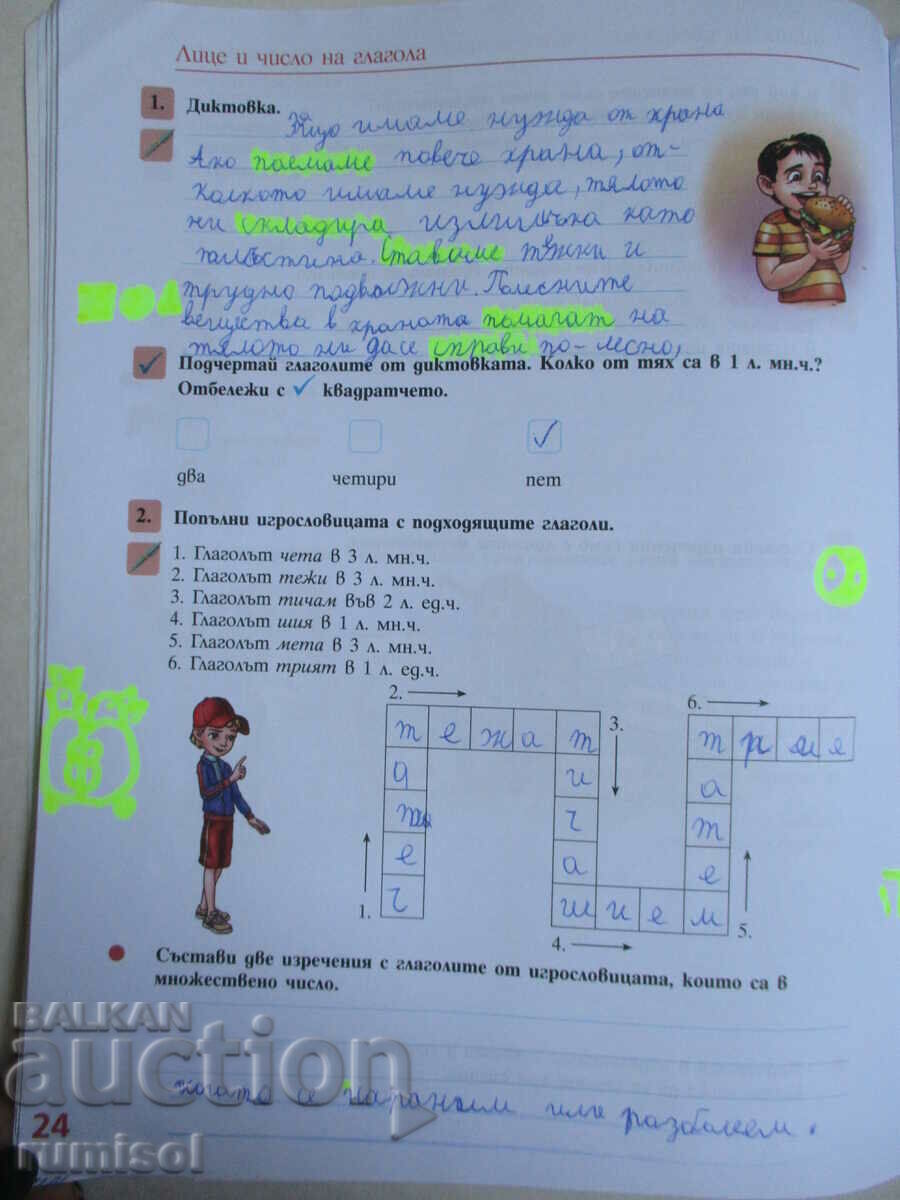 Лице и число на глагола
1. Диктовка.
имаме нужда от храна
Ако поемаме повече храна, от-
колкото имаме нужда, тялото
ни складира излишъка като
тлъстина. Ставаме тежки и
трудно подвижни. Полезните
вещества в храната помагат на
тялото ни да се справи по-лесно,
Подчертай глаголите от диктовката. Колко от тях са в 1 л. мн.ч.?
Отбележи с ✓ квадратчето.
два четири пет
2. Попълни игрословицата с подходящите глаголи.
1. Глаголът чета в 3 л. мн.ч.
2. Глаголът тежи в 3 л. мн.ч.
3. Глаголът тичам във 2 л. ед.ч.
4. Глаголът шия в 1 л. мн.ч.
5. Глаголът мета в 3 л. мн.ч.
6. Глаголът трият в 1 л. ед.ч.
2. 6.
т е ж а т 3. т р и я
а и а
т ч т
е а е
1. ч ш и е м 5.
4.
Състави две изречения с глаголите от игрословицата, които са в
множествено число.
когато се нараним или разболеем.
24
BALKAN
auction
rumisol